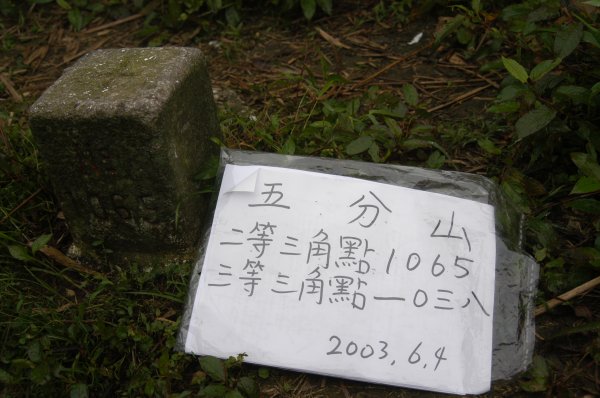 五分山
二等三角點1065
三等三角點一0三八
2003.6.4